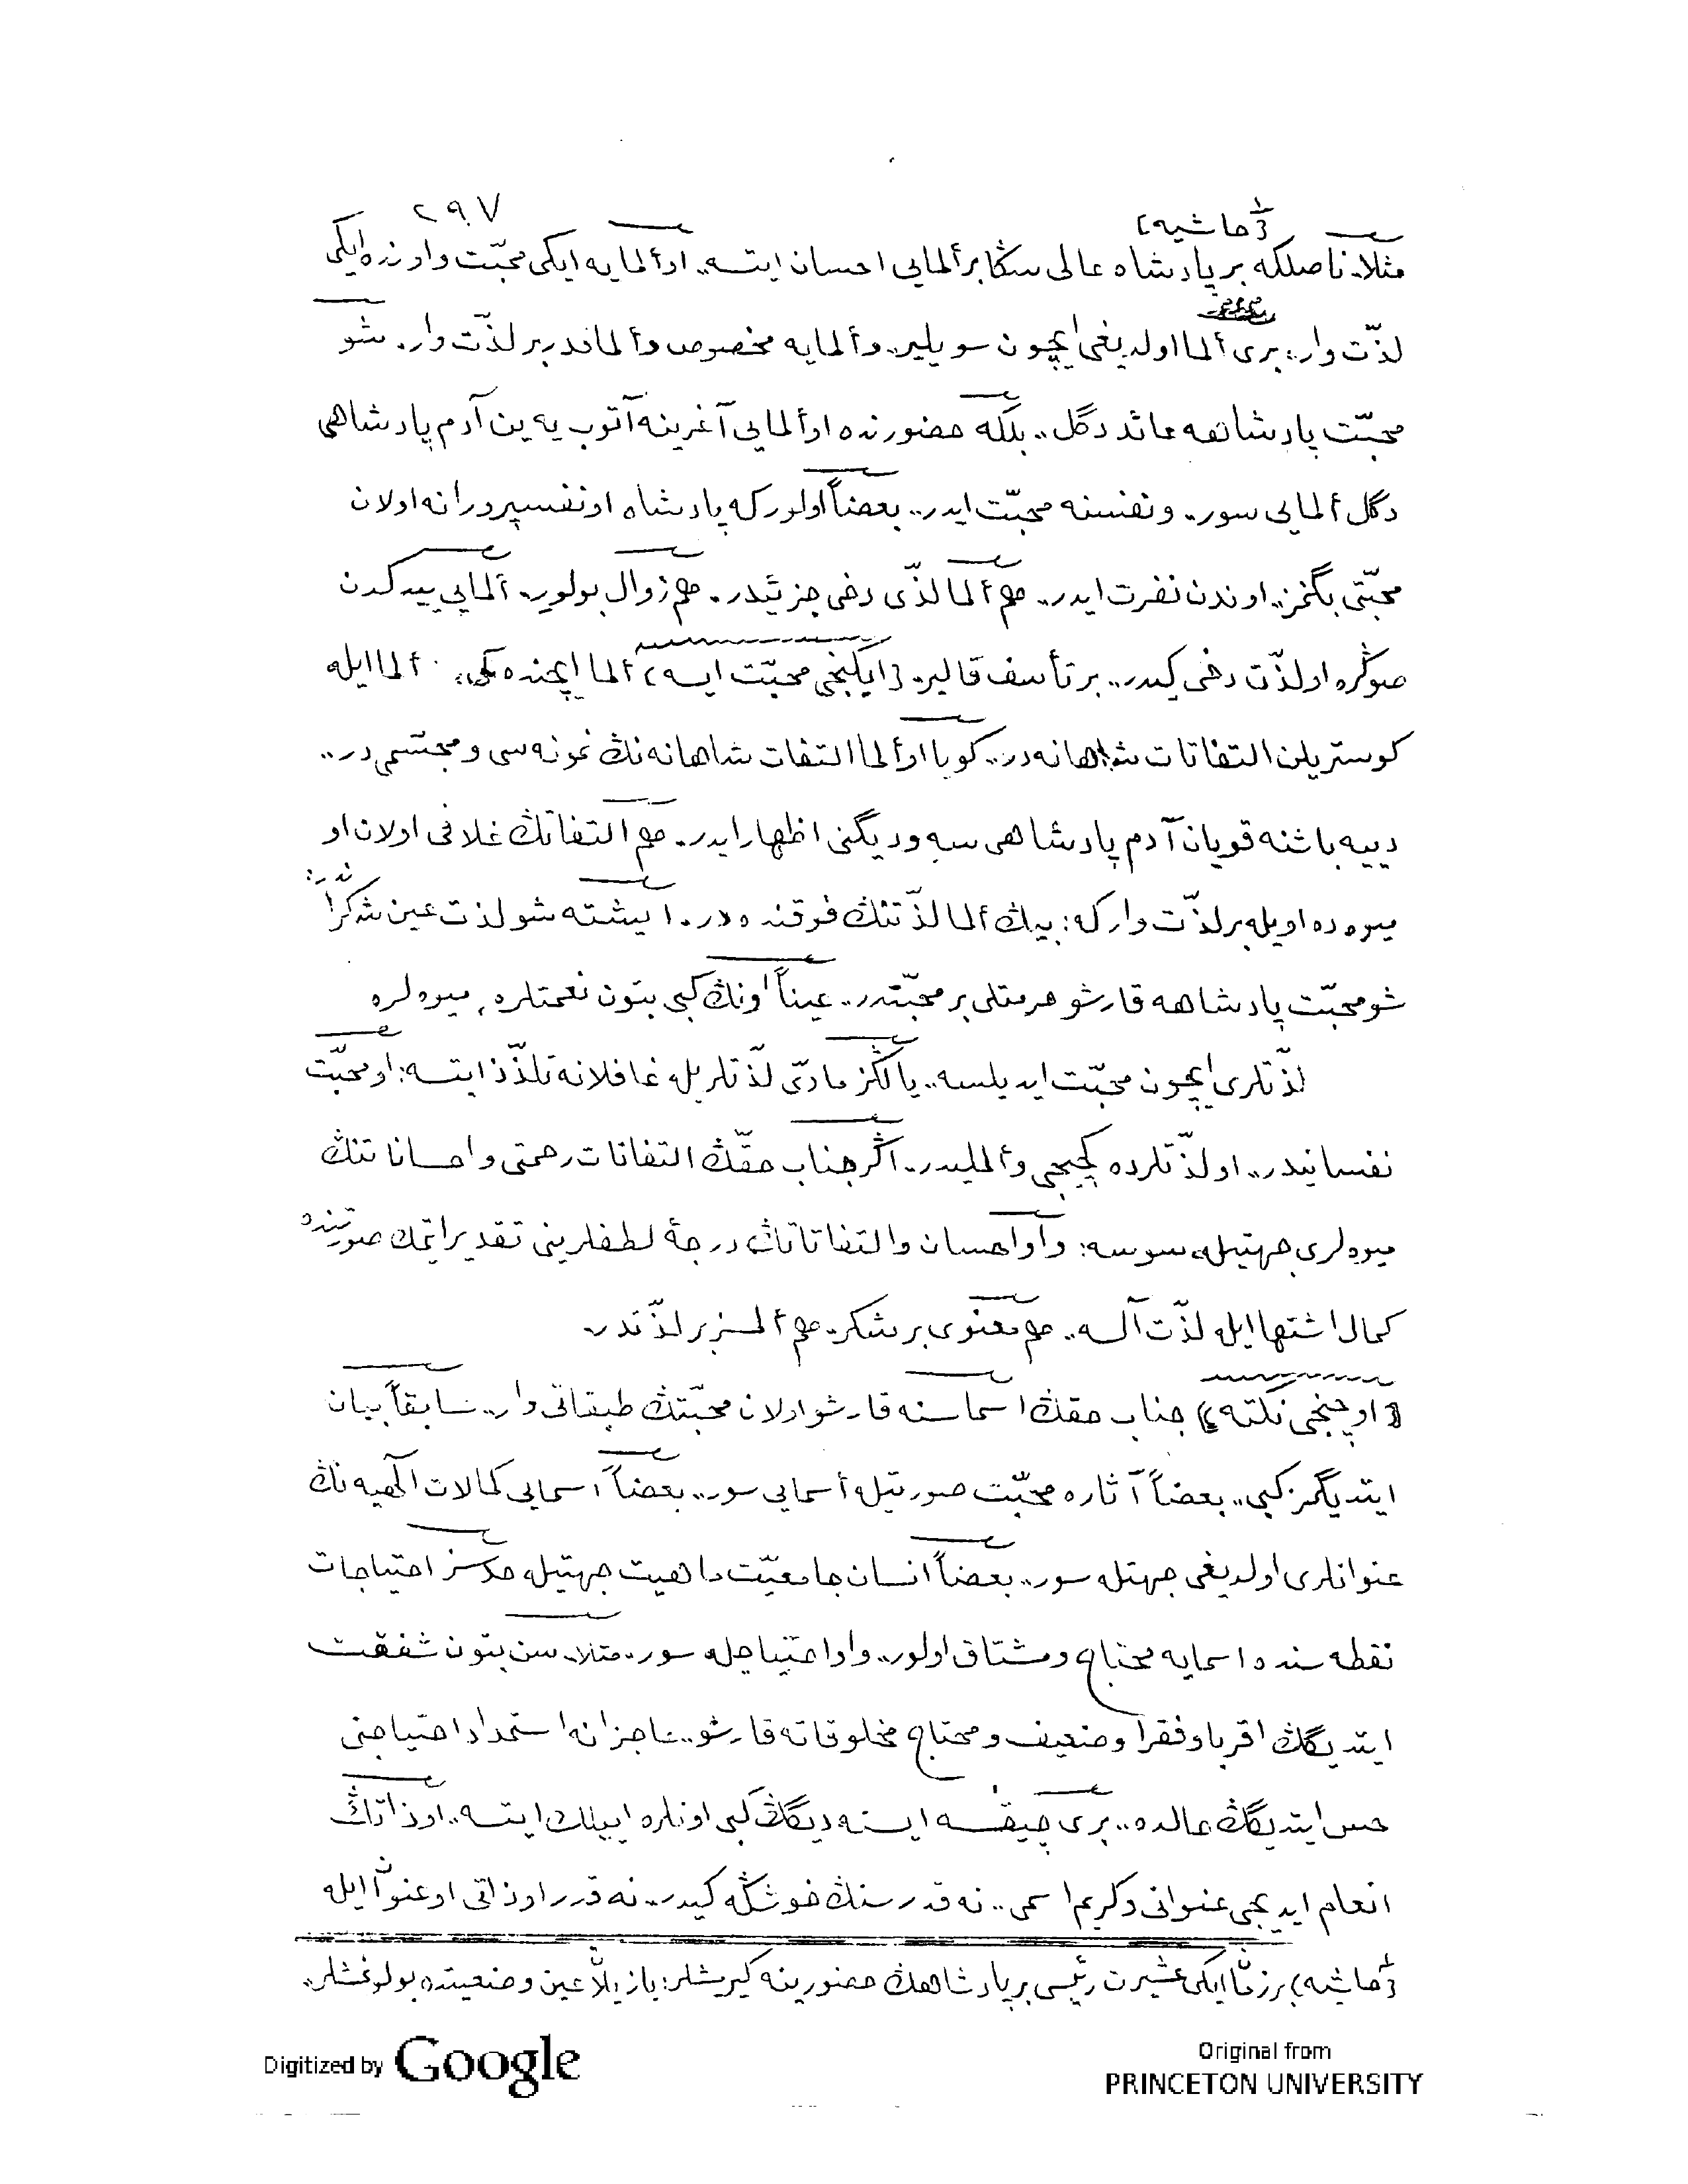 ٢٩٧
(حاشيه)
مثلا. ناصلكه بر پادشاه عالى سڭا بر ألمايى احسان ايتسه.. او ألمايه ايكى محبّت و اونده ايكى
لذّت وار: برى ألما اولديغى ايچون سويلير.. و ألمايه مخصوص و ألما قدر بر لذّت وار. شو
محبّت پادشاهه عائد دگل.. بلكه حضورنده او ألمايى آغزينه آتوب يه ين آدم پادشاهى
دگل ألمايى سور. و نفسنه محبّت ايدر.. بعضاً اولور كه پادشاه او نفسپرورانه اولان
محبّتى بگنمز.. اوندن نفرت ايدر.. هم ألما لذّتى دخى جزئيدر. هم زوال بولور. ألمايى ييدكدن
صوڭره او لذّت دخى گيدر.. بر تأسف قالير. (ايكنجى محبّت ايسه) ألما ايچنده كى.. ألما ايله
كوستريلن التفاتات شاهانه در.. گويا او ألما التفات شاهانه نڭ نمونه سى و مجسّمى در..
دييه باشنه قويان آدم پادشاهى سه ودیگنى اظهار ايدر. هم التفاتڭ غلافى اولان او
ميوه ده اويله بر لذّت وار كه: بيڭ ألما لذّتنڭ فوقنده در. ايشته شو لذت عين شكراندر:
شو محبّت پادشاهه قارشو حرمتلى بر محبّتدر.. عيناً اونڭ كبى بتون نعمتلره، ميوه لره
لذّتلرى ايچون محبّت ايديلسه.. يالڭز مادّى لذّتلريله غافلانه تلذّذ ايتسه: او محبّت
نفسانيدر.. او لذّتلرده گچيجى و ألمليدر. اگر جناب حقّڭ التفاتات رحمتى و احساناتنڭ
ميوه لرى جهتيله سوسه: و او احسان و التفاتاتڭ درجهٔ لطفلرينى تقدير ايتمك صورتنده
كمال اشتها ايله لذّت آلسه.. هم معنوى بر شكر. هم ألمسز بر لذّتدر.
(اوچنجى نكته) جناب حقڭ اسماسنه قارشو اولان محبّتڭ طبقاتى وار.. سابقاً بيان
ايتديگمز كبى.. بعضاً آثاره محبّت صورتيله أسمايى سور.. بعضاً أسمايى كمالات الٓهيه نڭ
عنوانلرى اولديغى جهتله سور.. بعضاً انسان جامعيّت ماهيت جهتيله حدسز احتياجات
نقطه سنده اسمايه محتاج و مشتاق اولور.. و او احتياجله سور. مثلا. سن بتون شفقت
ايتديگڭ اقربا و فقرا و ضعيف و محتاج مخلوقاته قارشو.. عاجزانه استمداد احتياجنى
حس ايتديگڭ حالده.. برى چيقسه ايسته ديگڭ كبى اونلره اييلك ايتسه.. او ذاتڭ
انعام ايديجى عنوانى و كريم اسمى.. نه قدر سنڭ خوشڭه گيدر.. نه قدر او ذاتى او عنوان ايله
(حاشيه) بر زمان ايكى عشيرت رئيسى بر پادشاهڭ حضورينه گيرمشلر: يازيلان عين وضعيتده بولونمشلر..
Digitized by Google
Original from
PRINCETON UNIVERSITY